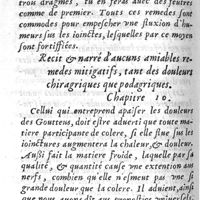 trois dragmes, tu en feras auec des feutres
comme de premier. Touts ces remedes sont
commodes pour empescher vne fluxion d'hu
meurs sus les ioinctes, lesquelles par ce moyen
sont fortifiées.
Recit & narré d'aucuns amiables re
medes mitigatifs, tant des douleurs
chiragriques que podagriques.
Chapitre 10.
Celluy qui entreprend apaiser les douleurs
des Goutteus, doit estre aduerti que toute ma
tiere participante de colere, si elle flue sus les
ioinctures augmentera la chaleur, & douleur.
Aussi fait la matiere froide, laquelle par sa
qualité, & quantité cause vne extention aux
nerfs, combien qu'elle n'esmeut pas vne si
grande douleur que la colere. Il aduient, ainsi